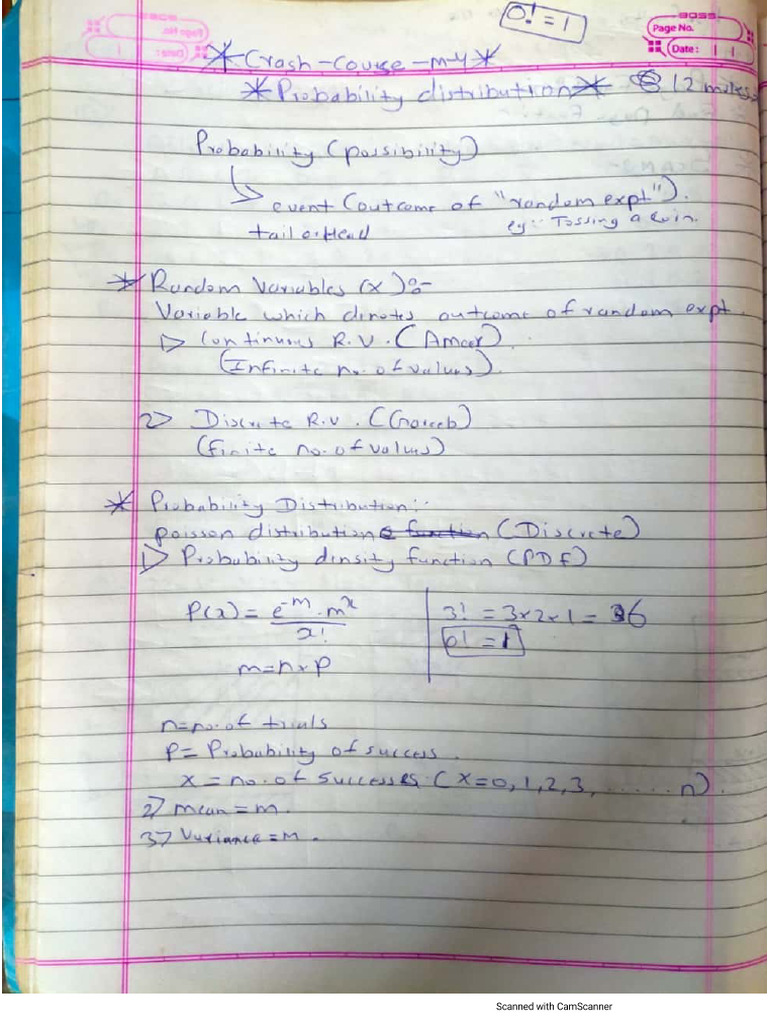 0! = 1
BOSS
Page No.
Date: | |
* Crash-Course-M-4 *
* Probability distribution * 12 marks
Probability (possibility)
event (outcome of "random expt").
tail or Head eg:- Tossing a coin.
* Random Variables (x):-
Variable which denotes outcome of random expt.
1> Continuous R.V. (Ameer).
(Infinite no. of values).
2> Discrete R.V. (Gareeb)
(finite no. of values)
* Probability Distribution:-
poisson distribution function (Discrete)
1> Probability density function (PDF)
P(x) = e^-m . m^x / x! 3! = 3×2×1 = 6
0! = 1
m = n×p
n = no. of trials
P = Probability of success.
x = no. of successes (x = 0, 1, 2, 3, ...... n).
2> mean = m.
3> Variance = m.
Scanned with CamScanner